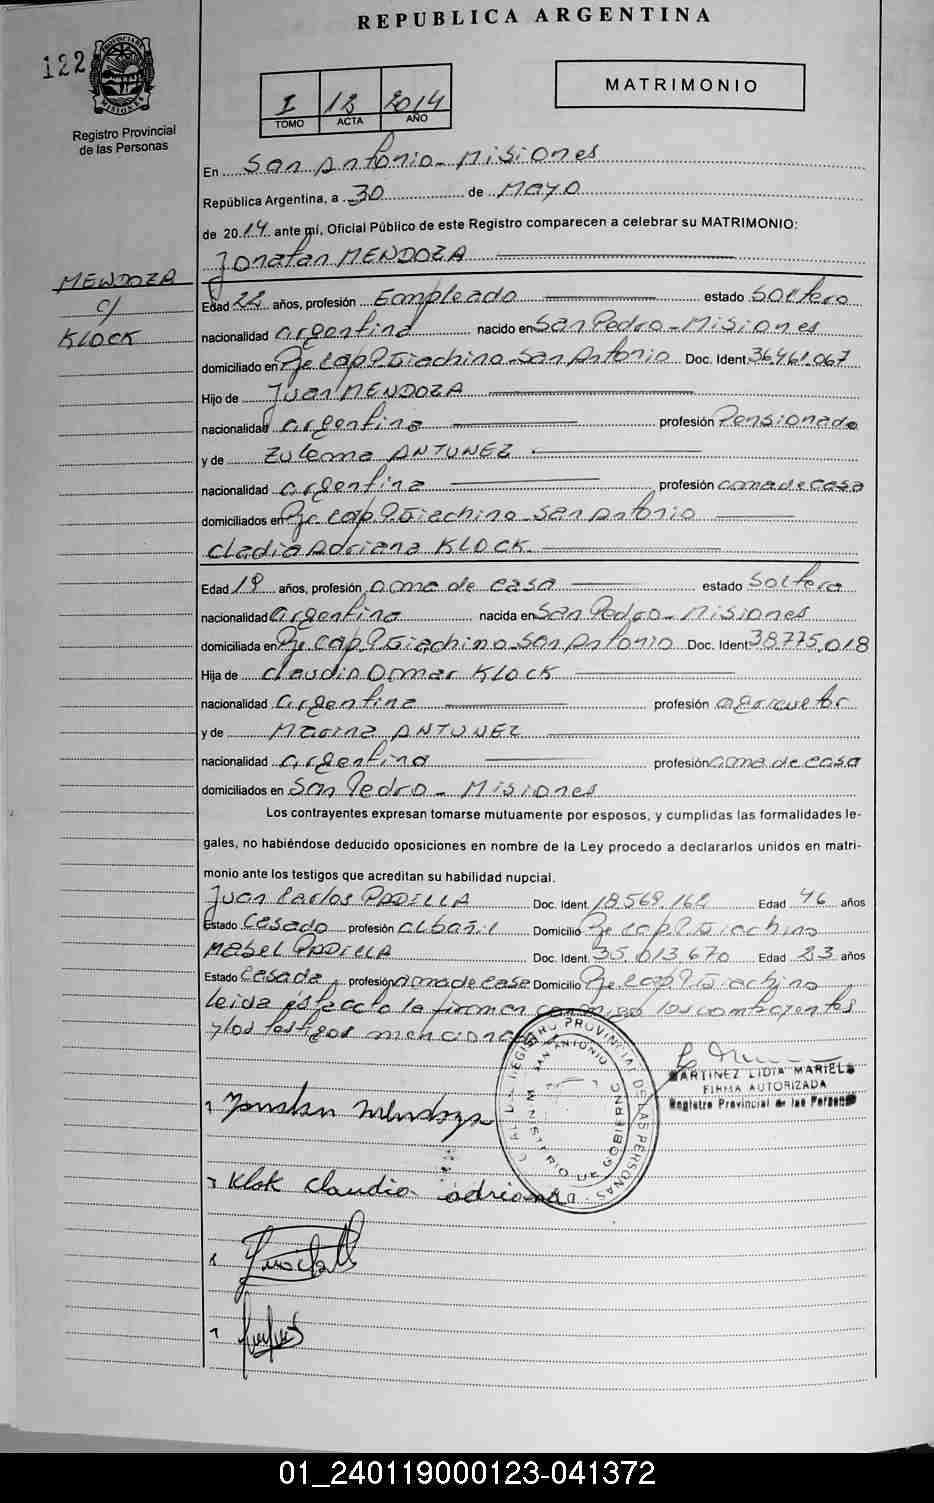 REPUBLICA ARGENTINA
122
PROVINCIA DE MISIONES
Registro Provincial
de las Personas
I 13 2014
TOMO ACTA AÑO
MATRIMONIO
En San Antonio - Misiones
República Argentina, a 30 de Mayo
de 2014 ante mí, Oficial Público de este Registro comparecen a celebrar su MATRIMONIO:
Jonatan MENDOZA
MENDOZA
c/
KLOCK
Edad 22 años, profesión Empleado estado Soltero
nacionalidad argentina nacido en San Pedro - Misiones
domiciliado en Pje Cap. P. Giachino - San Antonio Doc. Ident 36.461.067
Hijo de Juan MENDOZA
nacionalidad argentina profesión Pensionado
y de Zulema ANTUNEZ
nacionalidad argentina profesión ama de casa
domiciliados en Pje. Cap. P. Giachino - San Antonio
Cladia Adriana KLOCK.
Edad 19 años, profesión ama de casa estado Soltera
nacionalidad argentina nacida en San Pedro - Misiones
domiciliada en Pje Cap P. Giachino - San Antonio Doc. Ident 38.775.018
Hija de Claudio Osmar KLOCK
nacionalidad argentina profesión agricultor
y de Marina ANTUNEZ
nacionalidad argentina profesión ama de casa
domiciliados en San Pedro - Misiones
Los contrayentes expresan tomarse mutuamente por esposos, y cumplidas las formalidades le-
gales, no habiéndose deducido oposiciones en nombre de la Ley procedo a declararlos unidos en matri-
monio ante los testigos que acreditan su habilidad nupcial.
Juan Carlos PADILLA Doc. Ident. 18.569.162 Edad 46 años
Estado Casado profesión albañil Domicilio Pje Cap P. Giachino
Mabel PADILLA Doc. Ident. 35.013.670 Edad 23 años
Estado Casada profesión ama de casa Domicilio Pje Cap P. Giachino
Leida esta acta la firman conmigo los contrayentes
y los testigos mencionados
REGISTRO PROVINCIAL DE LAS PERSONAS
SAN ANTONIO
MINISTERIO DE GOBIERNO
MARTINEZ LIDIA MARIELA
FIRMA AUTORIZADA
Registro Provincial de las Personas
Jonatan Mendoza
Klok Claudia adriana
01_240119000123-041372